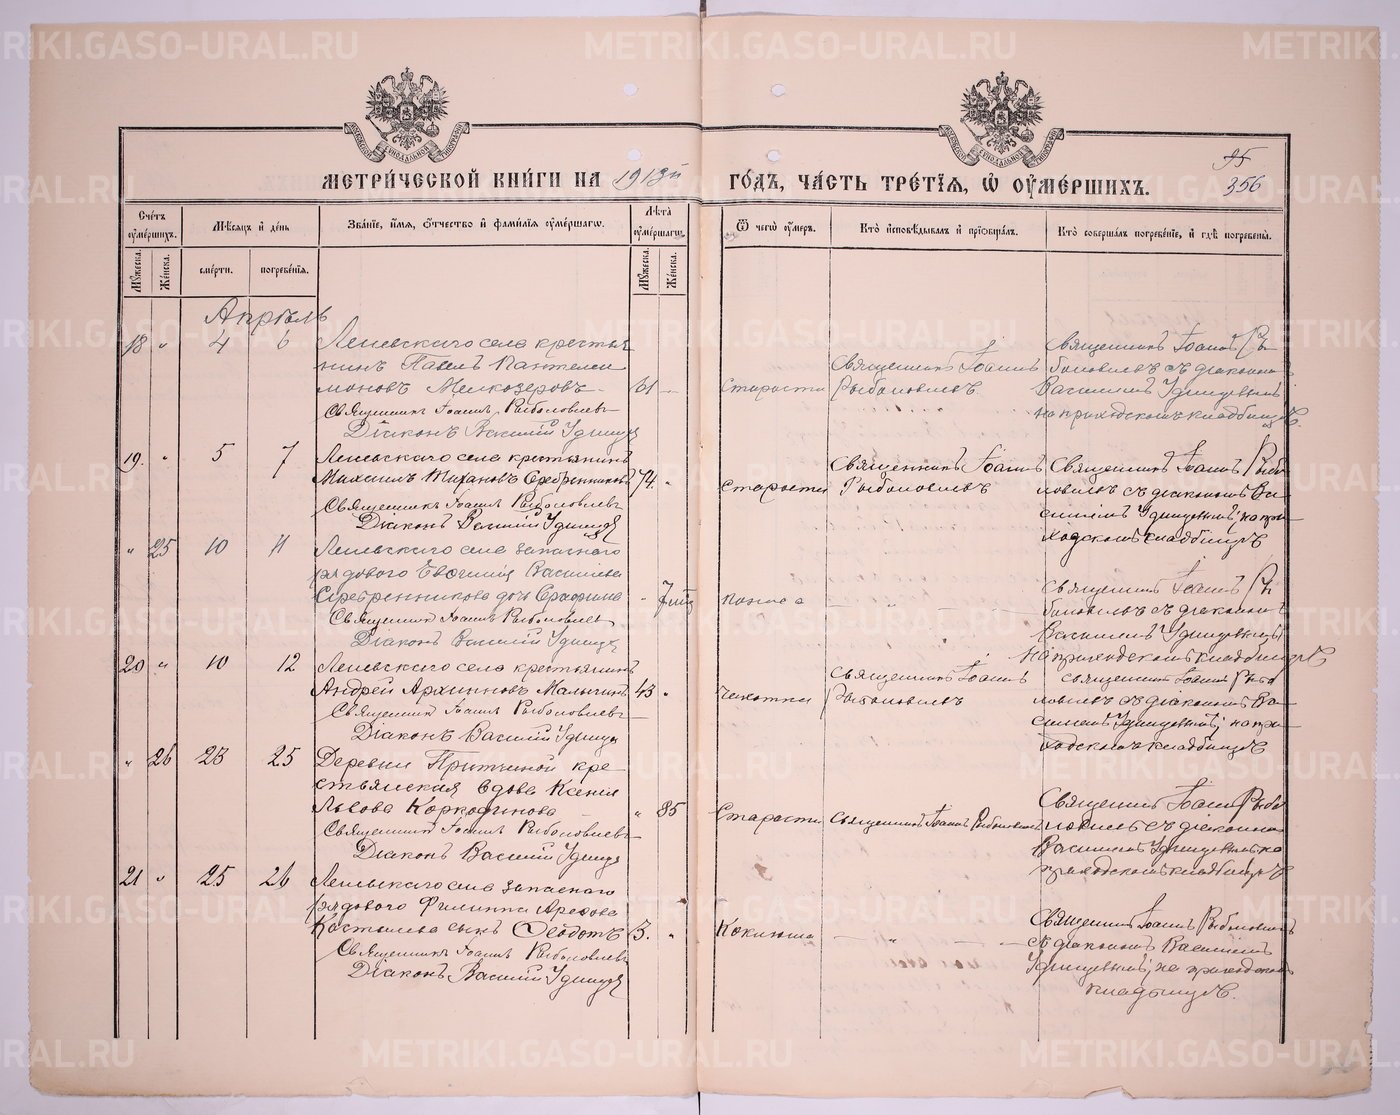 МЕТРИ́ЧЕСКОЙ КНИ́ГИ НА 1913й ГО́ДЪ, ЧА́СТЬ ТРЕ́ТЇѦ, Ѡ҆ ОУ҆МЕ́РШИХЪ.
356
Сче́тъ оу҆ме́ршихъ.
Мѣ́сѧцъ и҆ де́нь
Зва́нїе, и҆́мѧ, ѻ҆́тчество и҆ фами́лїѧ оу҆ме́ршагѡ.
Лѣ́та оу҆ме́ршагѡ.
Ѿ чегѡ̀ оу҆́меръ.
Кто̀ и҆сповѣ́дывалъ и҆ прїѡбща́лъ.
Кто̀ соверша́лъ погребе́нїе, и҆ гдѣ̀ погребены̀.
Мꙋ́жеска.
Же́нска.
сме́рти.
погребе́нїѧ.
Мꙋ́жеска.
Же́нска.
Апрѣль
18 " 4 6
Леневскаго села крестья-
нинъ Павелъ Пантелей-
моновъ Мелкозеровъ 61 —
Священникъ Іоаннъ Рыболовлевъ
Діаконъ Василій Удинцев
Старости
Священникъ Іоаннъ
Рыболовлевъ
Священникъ Іоаннъ Ры-
боловлевъ съ діакономъ
Василіемъ Удинцевымъ
на приходскомъ кладбищѣ.
19. " 5 7
Леневскаго села крестьянинъ
Михаилъ Тихановъ Серебренниковъ 74. "
Священникъ Іоаннъ Рыболовлевъ
Діаконъ Василій Удинцев
Старости
Священникъ Іоаннъ
Рыболовлевъ
Священникъ Іоаннъ Рыбо-
ловлевъ съ діакономъ Ва-
силіемъ Удинцевымъ; на при-
ходскомъ кладбищѣ
" 25 10 11
Леневскаго села запаснаго
рядового Евгенія Василіева
Серебренникова дочь Серафима " 7 мцъ
Священникъ Іоаннъ Рыболовлевъ
Діаконъ Василій Удинцев
поноса — " —
Священникъ Іоаннъ Ры-
боловлевъ съ діакономъ
Василіемъ Удинцевымъ
на приходскомъ кладбищѣ
20 " 10 12
Леневскаго села крестьянинъ
Андрей Архиповъ Малыгинъ 43 "
Священникъ Іоаннъ Рыболовлевъ
Діаконъ Василій Удинцев
Чахотки
Священникъ Іоаннъ
Рыболовлевъ
Священникъ Іоаннъ Рыбо-
ловлевъ съ діакономъ Ва-
силіемъ Удинцевымъ; на при-
ходскомъ кладбищѣ
" 26 23 25
Деревни Притчиной кре-
стьянская вдова Ксенія
Львова Коркодинова " 85
Священникъ Іоаннъ Рыболовлевъ
Діаконъ Василій Удинцев
Старости
Священникъ Іоаннъ Рыболовлевъ
Священникъ Іоаннъ Рыбо-
ловлевъ съ діакономъ
Василіемъ Удинцевымъ на
приходскомъ кладбищѣ
21 " 25 26
Леневскаго села запаснаго
рядового Филиппа Арефова
Костылева сынъ Ѳеодотъ 3. "
Священникъ Іоаннъ Рыболовлевъ
Діаконъ Василій Удинцев
Коклюша — " —
Священникъ Іоаннъ Рыболовлевъ
съ діакономъ Василіемъ
Удинцевымъ; на приходскомъ
кладбищѣ.
METRIKI.GASO-URAL.RU